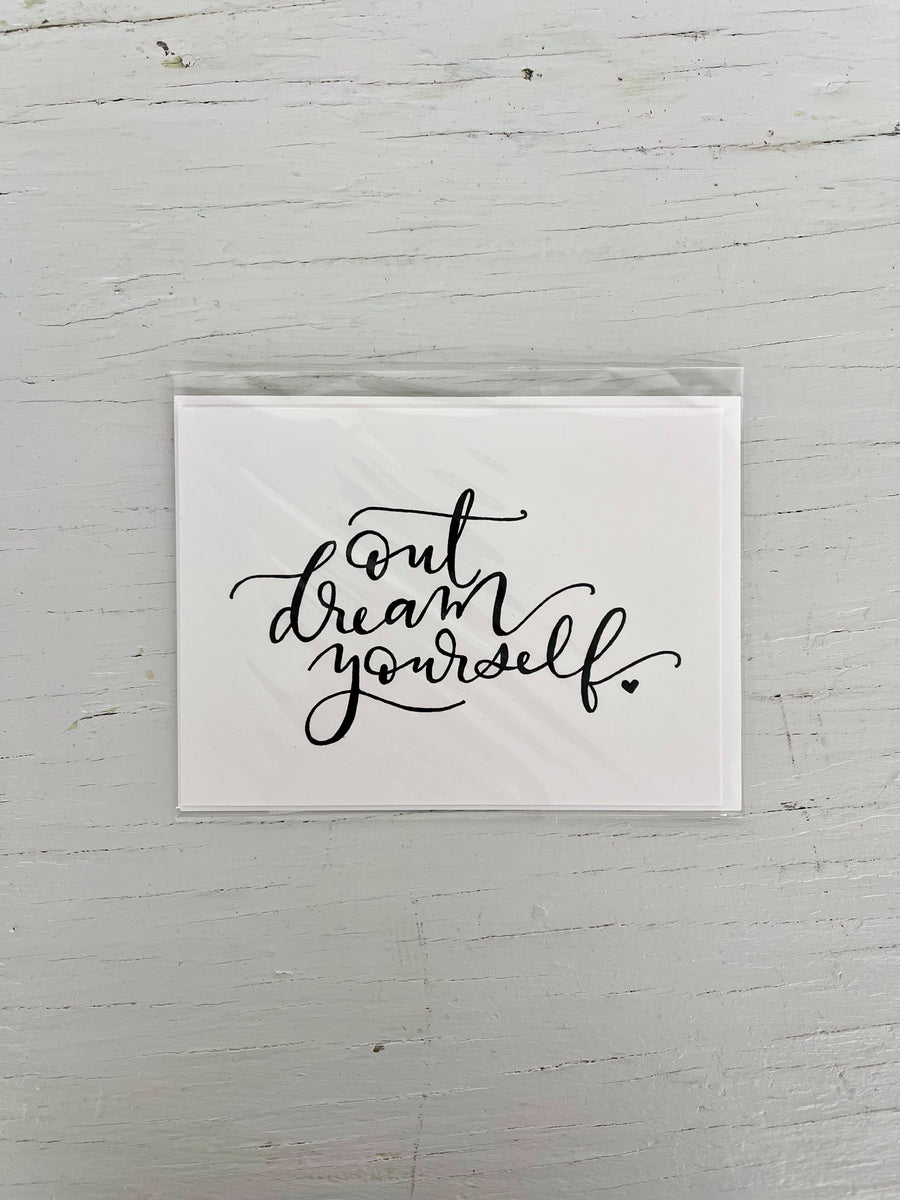 out
dream
yourself.